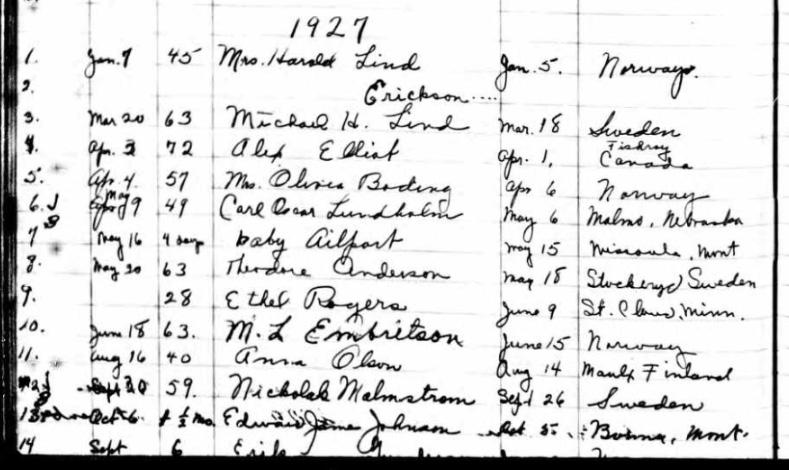 1927
1. Jan. 7 45 Mrs. Harold Lind Jan. 5. Norway.
2. Erickson....
3. Mar 20 63 Michael H. Lind Mar. 18 Sweden
4. Apr. 3 72 Alex Elliot Apr. 1, Canada
5. Apr. 4. 57 Mrs. Olivia Boding Apr 6 Norway
6. May 9 49 Carl Oscar Lundholm May 6 Malmo, Nebraska
7 May 16 4 days baby Ailport May 15 Missoula, Mont
8. May 20 63 Theodore Anderson May 18 Sweden
9. 28 Ethel Rogers June 9 St. Minn.
10. June 18 63. M. L Embretson June 15 Norway
11. Aug 16 40 Anna Olson Aug 14 Finland
12 Sept 59. Nickolak Malmstrom Sept 26 Sweden
13 Oct 6. Mo. Edward Johnson Oct 5. Mont.
14 Sept 6 Erik